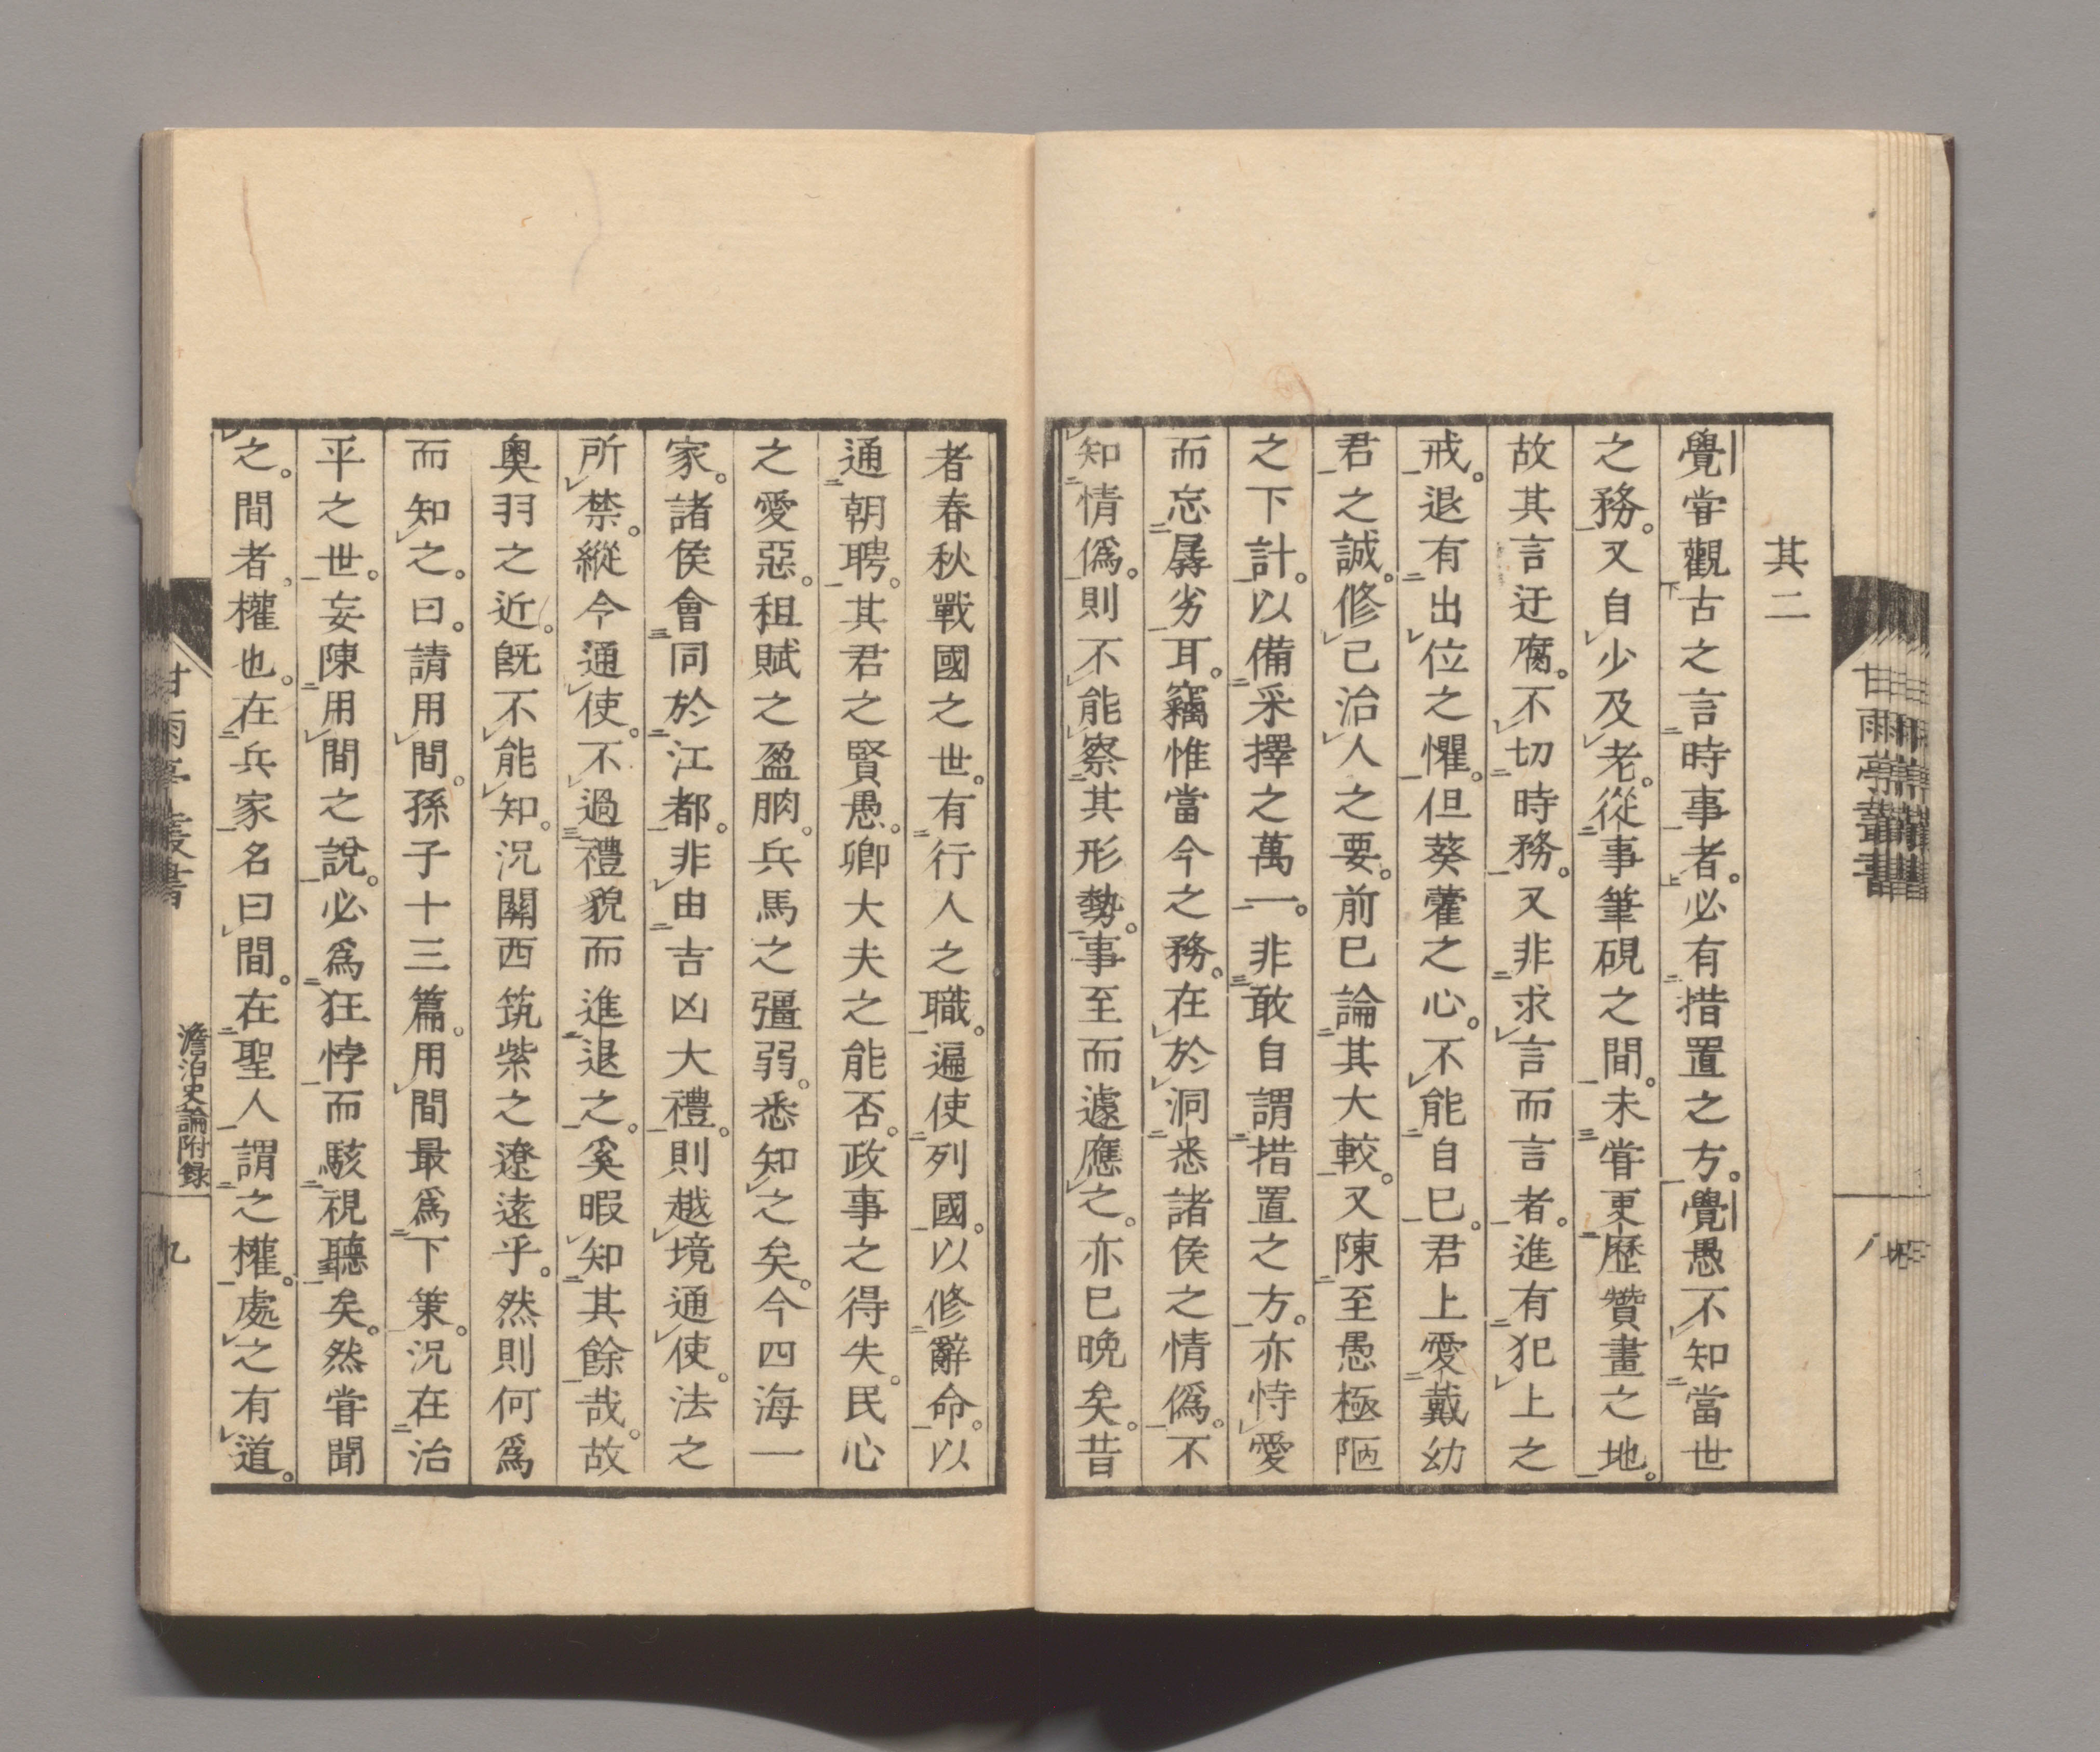 其二
覺甞觀古之言時事者。必有措置之方。覺愚不知當世
之務。又自少及老。從事筆硯之間。未甞更歷贊畫之地。
故其言迂腐。不切時務。又非求言而言者。進有犯上之
戒。退有出位之懼。但葵藿之心。不能自已。君上愛戴幼
君之誠。修己治人之要。前已論其大較。又陳至愚極陋
之下計。以備采擇之萬一。非敢自謂措置之方。亦恃愛
而忘孱劣耳。竊惟當今之務。在於洞悉諸侯之情僞。不
知情僞。則不能察其形勢。事至而遽應之。亦已晩矣。昔
者春秋戰國之世。有行人之職。遍使列國。以修辭命。以
通朝聘。其君之賢愚。卿大夫之能否。政事之得失。民心
之愛惡。租賦之盈朒。兵馬之彊弱。悉知之矣。今四海一
家。諸侯會同於江都。非由吉凶大禮。則越境通使。法之
所禁。縱令通使。不過禮貌而進退之。奚暇知其餘哉。故
奧羽之近。旣不能知。況關西筑紫之遼遠乎。然則何爲
而知之。曰。請用間。孫子十三篇。用間最爲下策。況在治
平之世。妄陳用間之說。必爲狂悖而駭視聽矣。然甞聞
之。間者。權也。在兵家名曰間。在聖人謂之權。處之有道。
甘雨亭叢書
澹泊史論附錄
九